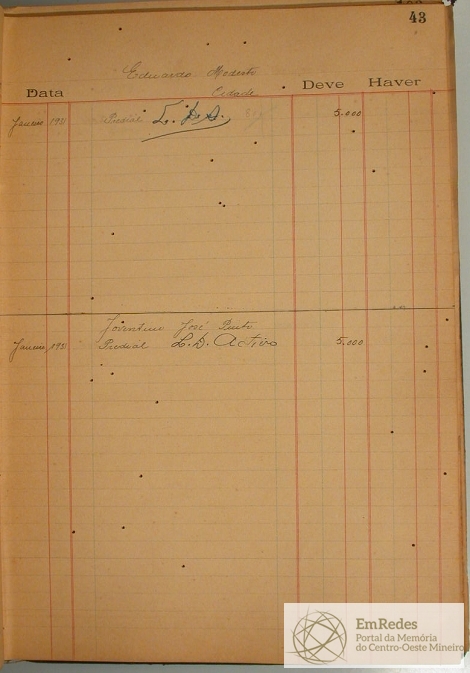 43
Eduardo Modesto
Data Cidade Deve Haver
Janeiro 1931 Predial L. D. A. 5.000
Joventino José Pinto
Janeiro, 1931 Predial L. D. Activo 5.000
EmRedes
Portal da Memória
do Centro-Oeste Mineiro